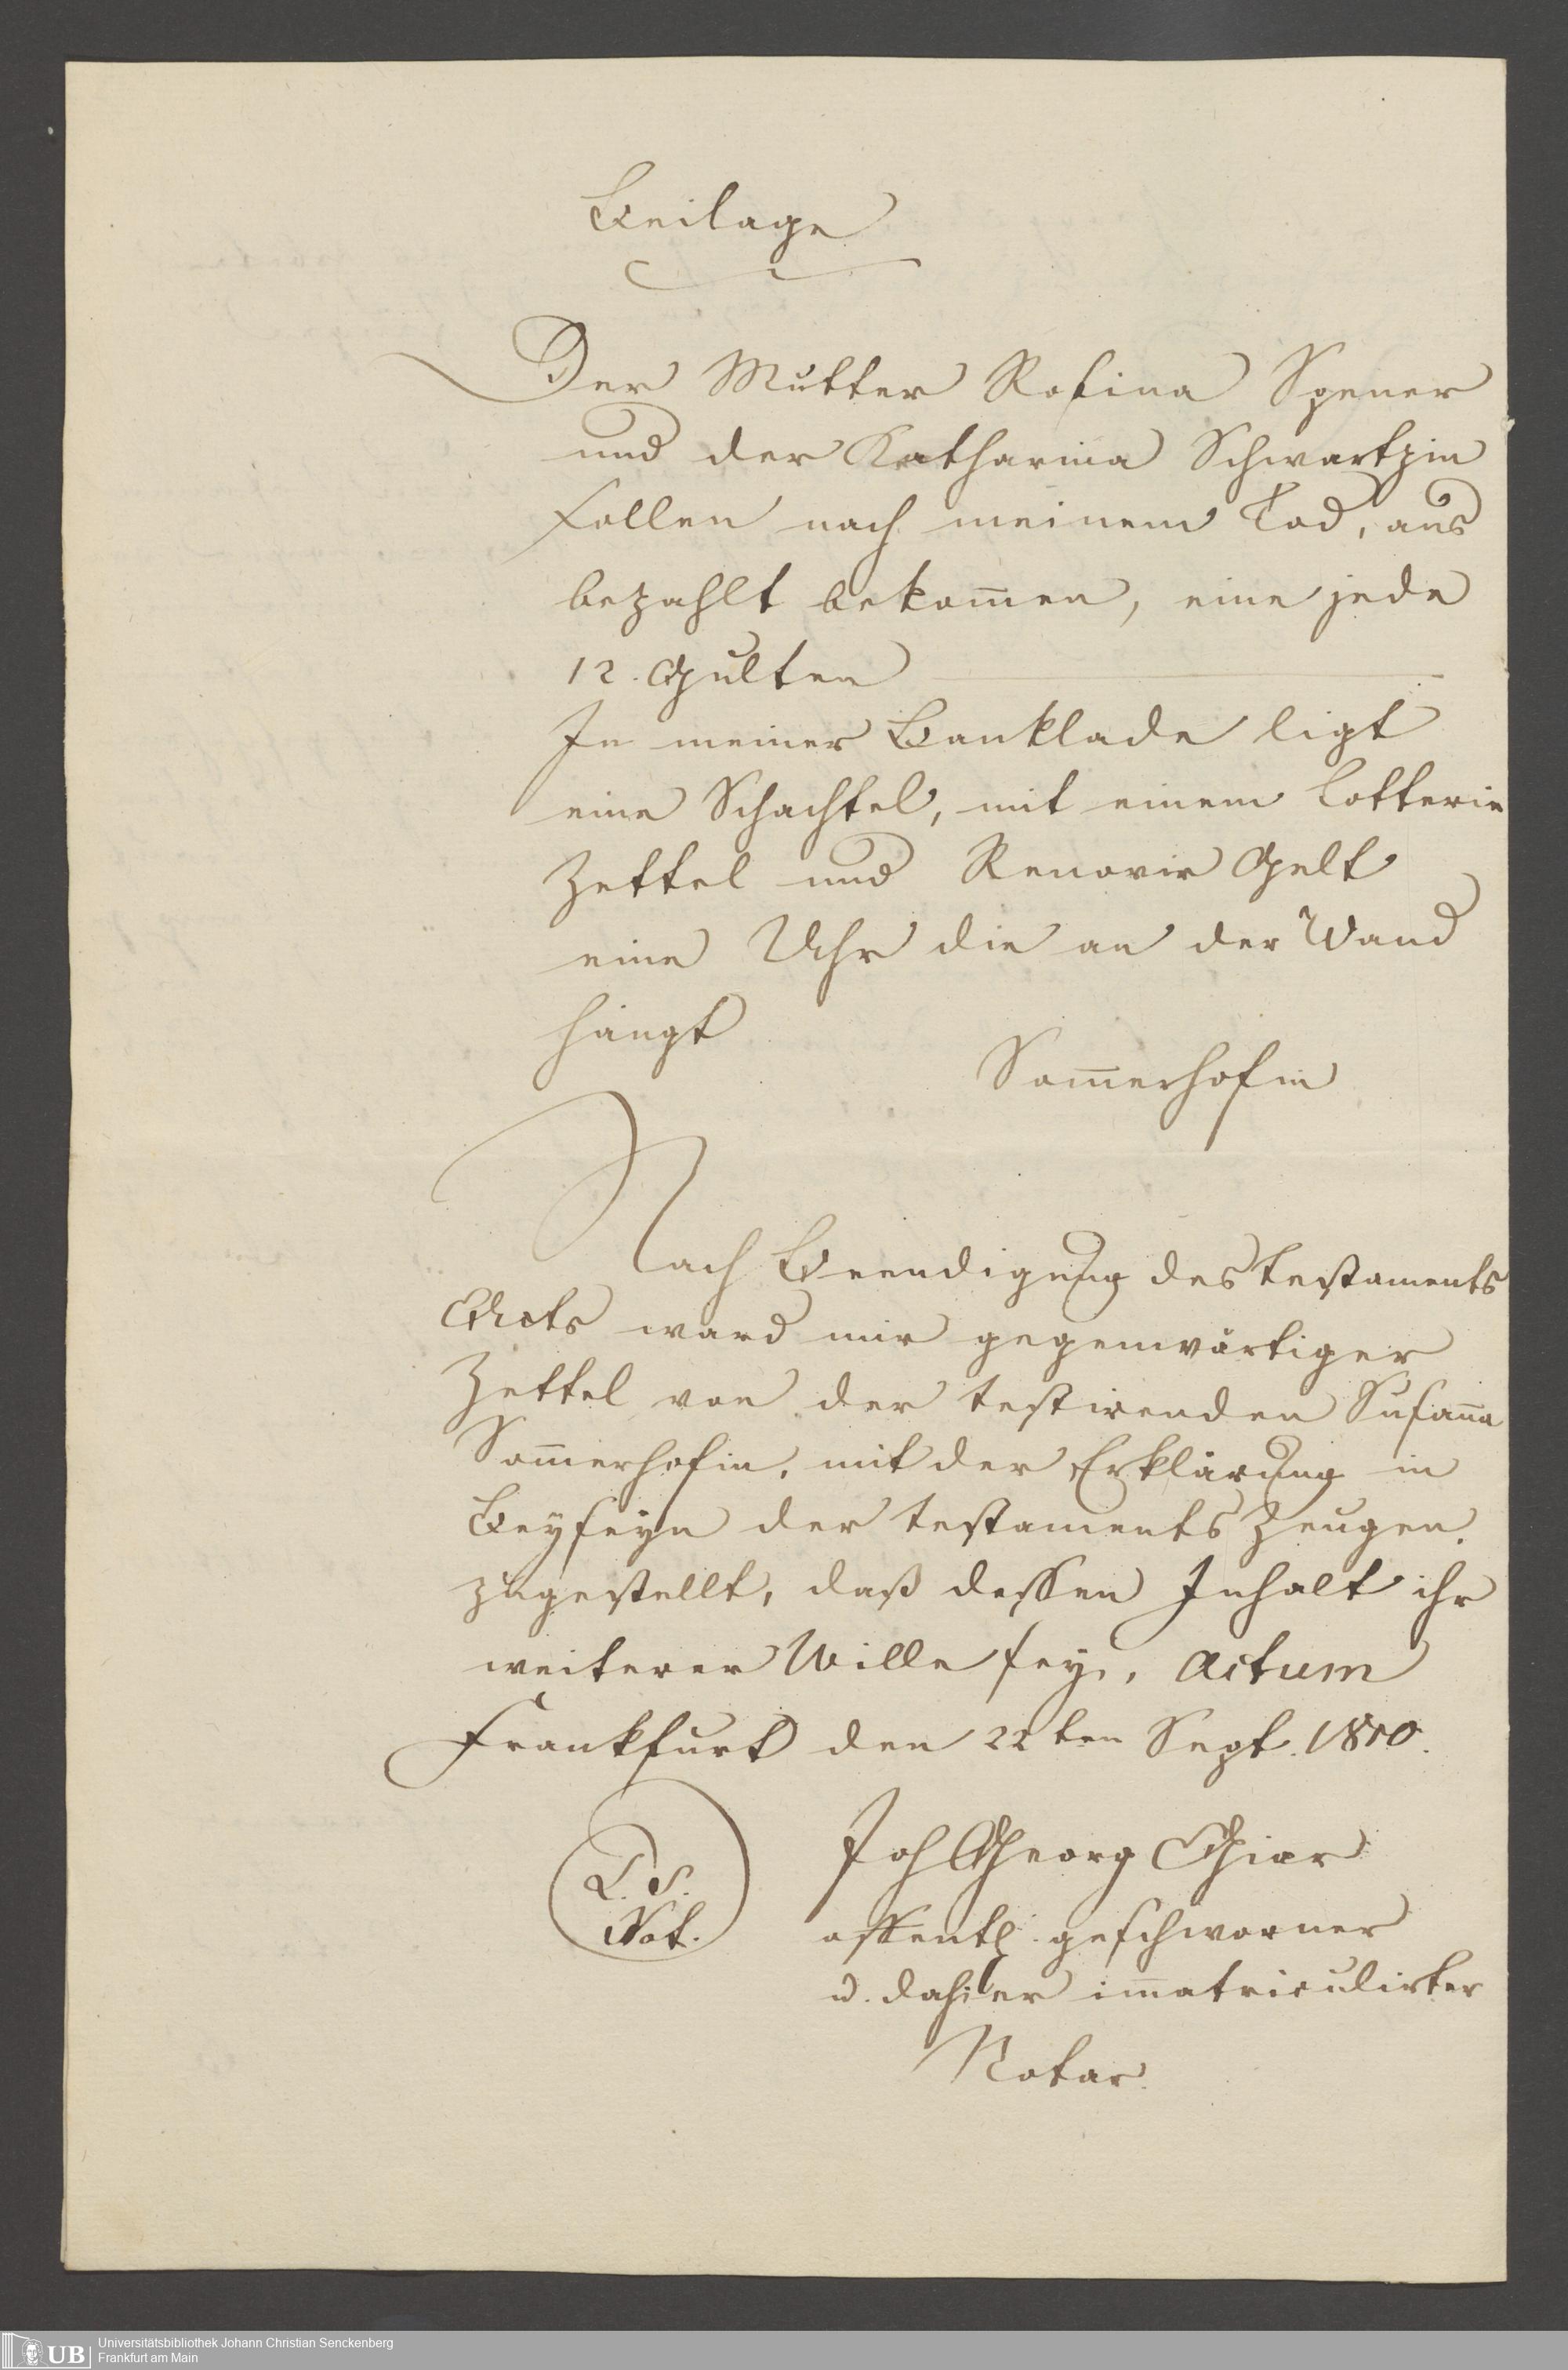 Beilage
Der Mutter Rosina Spener
und der Katharina Schwartzin
sollen nach meinem Tod, aus
bezahlt bekom̅en, eine jede
12. Gulten
In meiner Banklade ligt
eine Schachtel, mit einem Lotterie
Zettel und Renovir Gelt
eine Uhr die an der Wand
hängt
Som̅erhofin
Nach Beendigung des testaments
Acts ward mir gegenwärtiger
Zettel von der testirenden Susan̅a
Som̅erhofin, mit der Erklärung in
Beyseyn der testaments Zeugen
zugestellt, daß dessen Inhalt ihr
weiterer Wille sey., Actum
Frankfurt den 22ten Sept. 1810.
L. S.
Not.
Joh Georg
öffentl. geschworner
u. dahier im̅atriculirter
Notar.
Universitätsbibliothek Johann Christian Senckenberg
Frankfurt am Main
UB